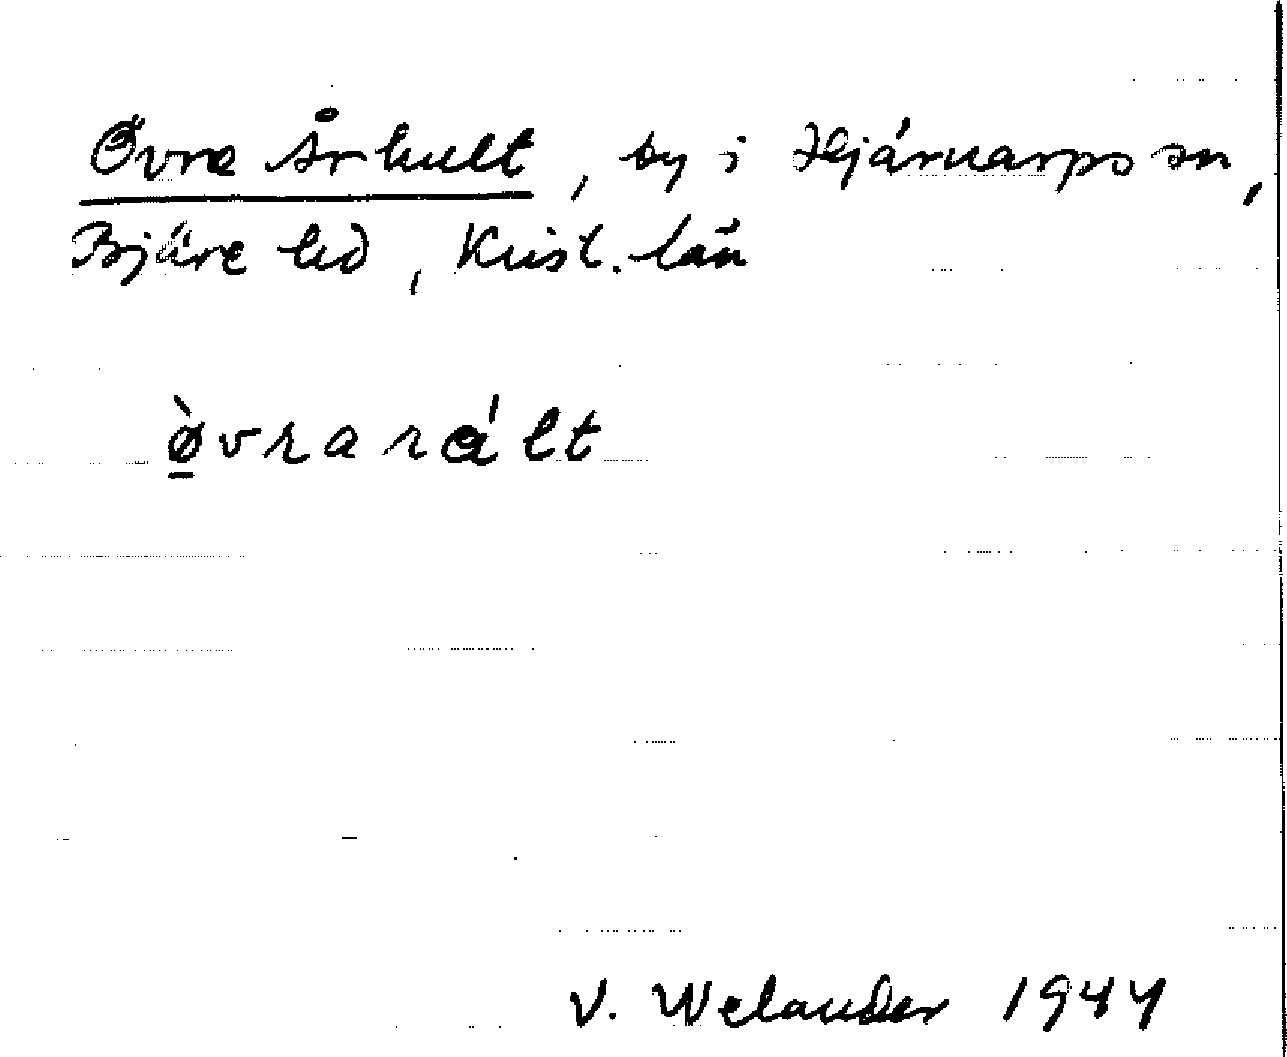 Övre Århult, by i Hjärnarps sn,
Bjäre hd, Krist. län
ø̱̀vrarált
V. Welander 1944